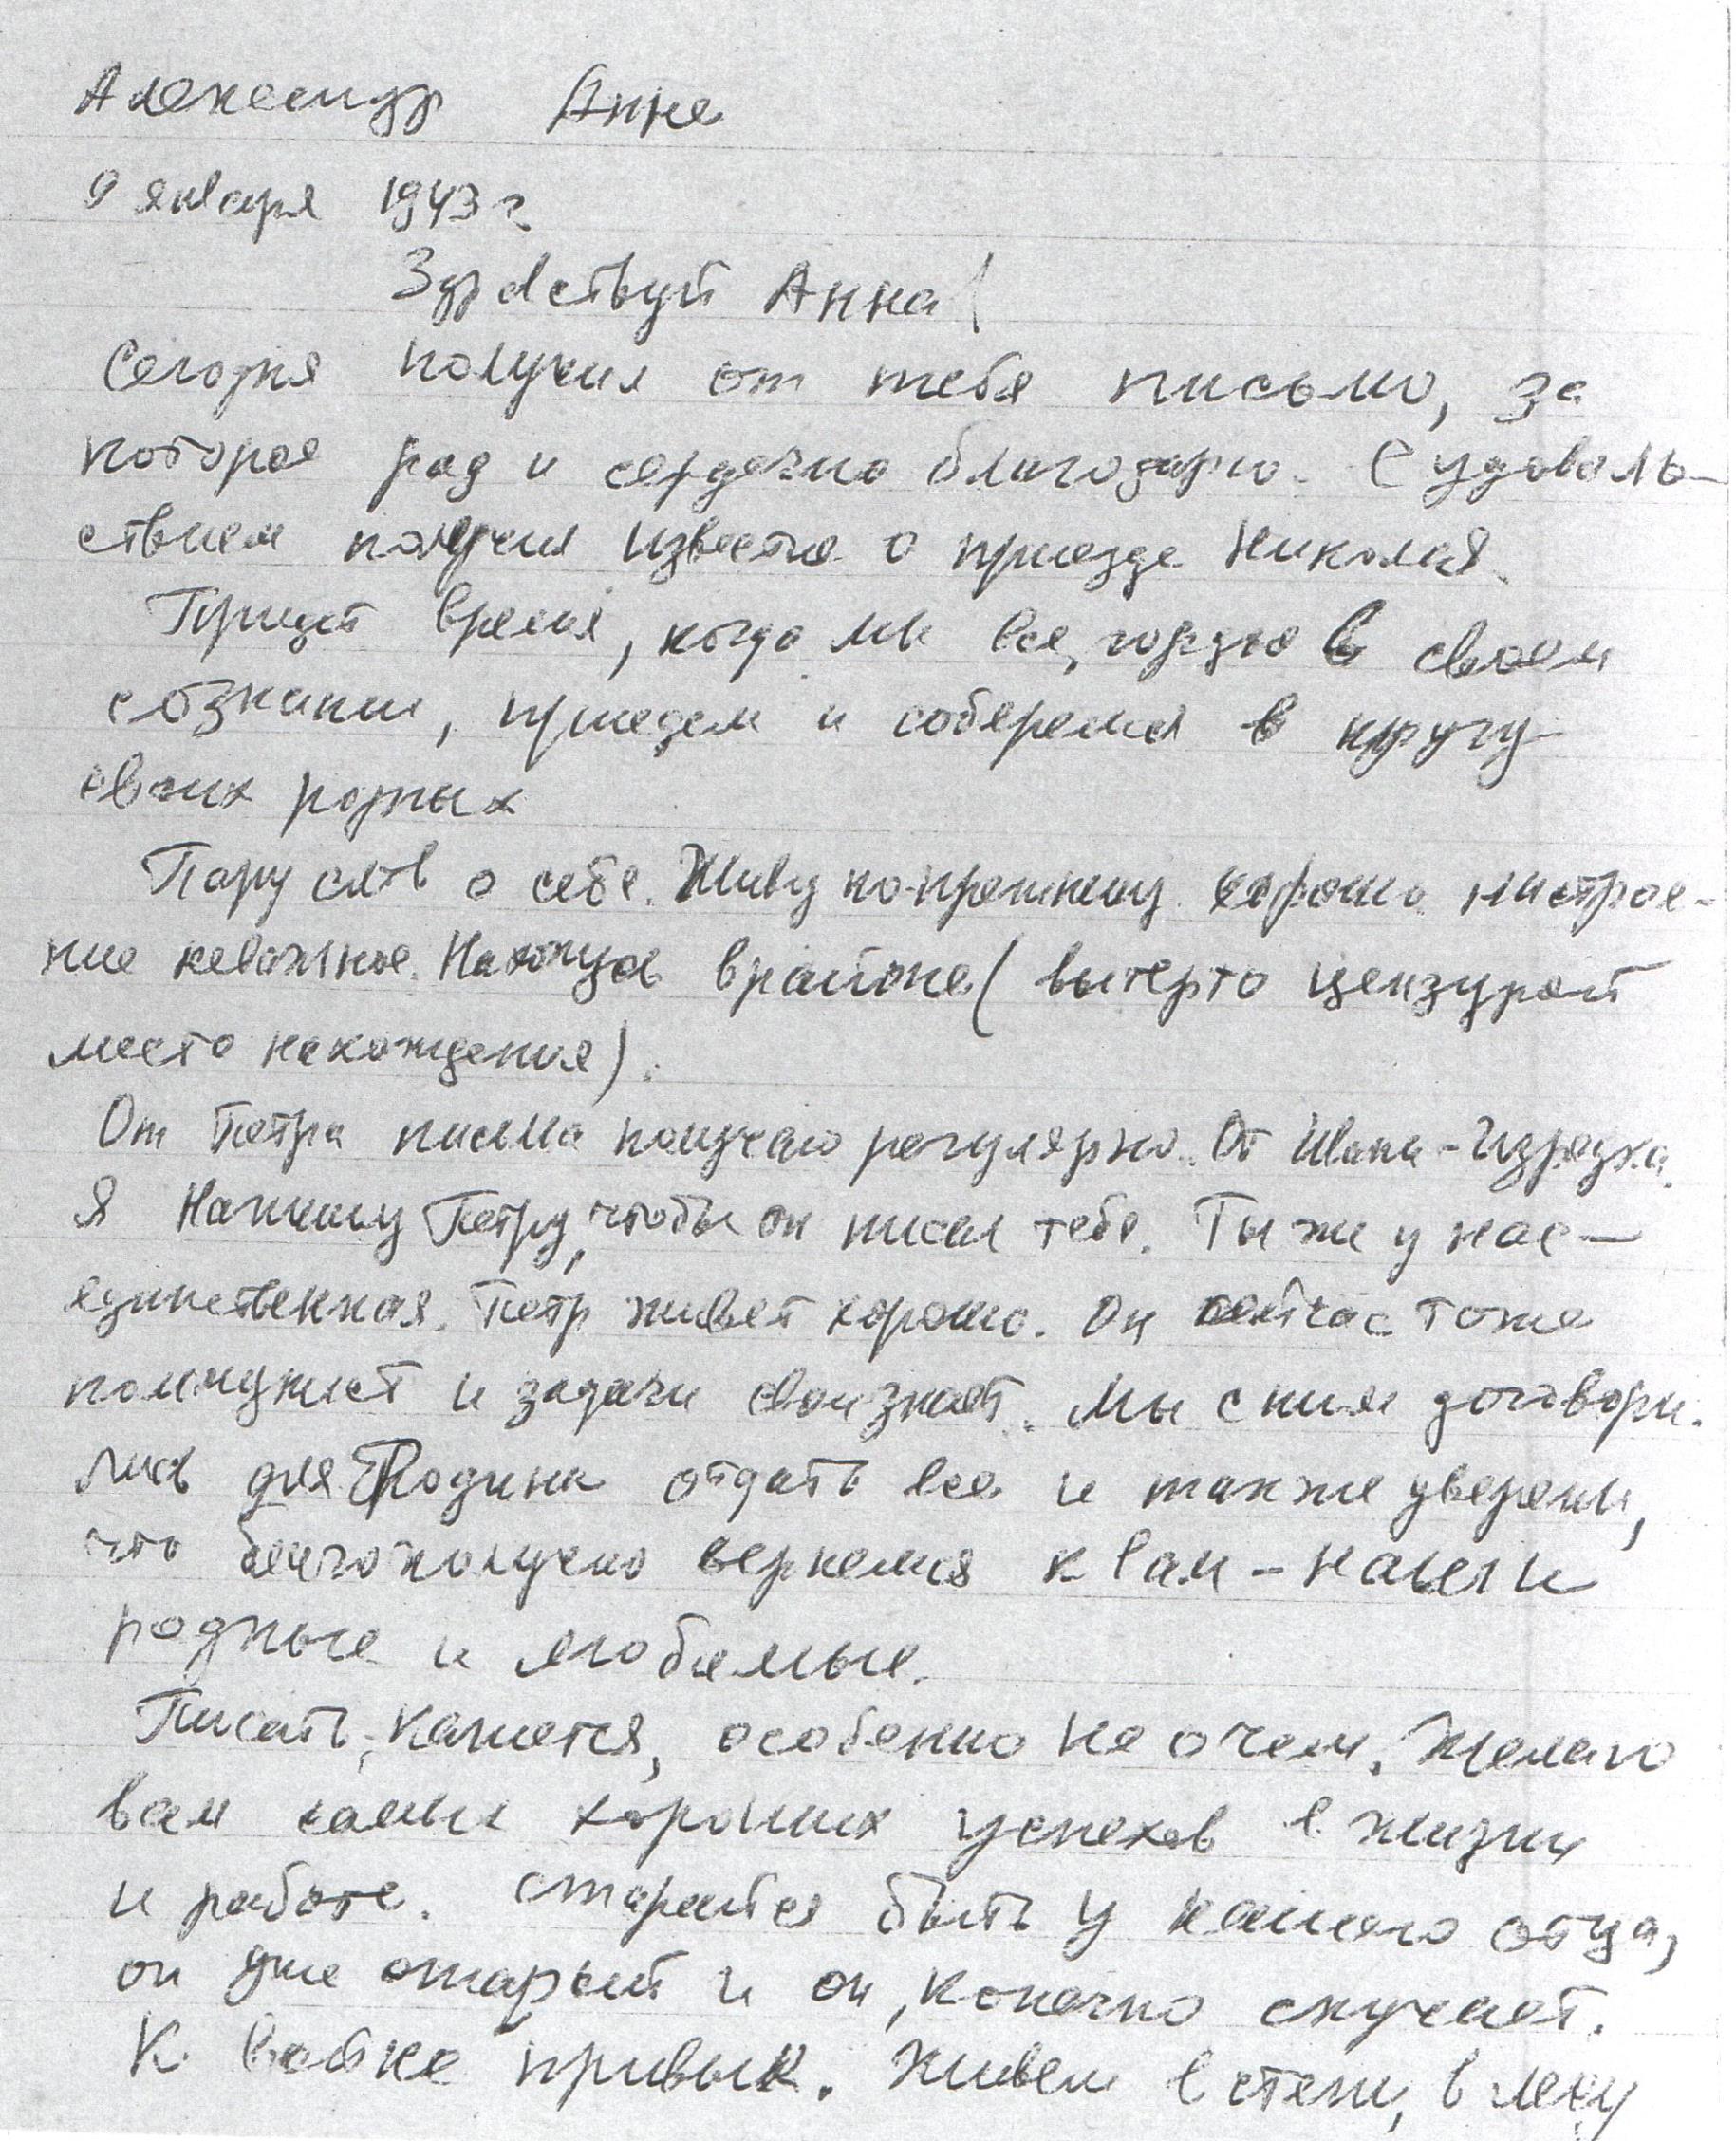 Александр Анне
9 января 1943 г
Здравствуй Анна!
Сегодня получил от тебя письмо, за
которое рад и сердечно благодарю. С удоволь-
ствием получил известие о приезде Николая.
Придет время, когда мы все, гордые в своем
сознании, приедем и соберемся в кругу
своих родных
Пару слов о себе. Живу по-прежнему хорошо настрое-
ние неважное. Нахожусь в районе (вытерто цензурой
место нахождения).
От Петра письма получаю регулярно. От Шаки - Изредка.
Я Напишу Петру, чтобы он писал тебе. Ты же у нас —
единственная. Петр живет хорошо. Он сейчас тоже
коммунист и задачи свои знает. Мы с ним договори-
лись для Родины отдать все и также уверены,
что благополучно вернемся к вам - наши
родные и любимые.
Писать, кажется, особенно не о чем. Желаю
вам самых хороших успехов в жизни
и работе. Старайтесь быть у нашего отца,
он уже старый и он, конечно скучает.
К войне привык. Живем в степи, в лесу